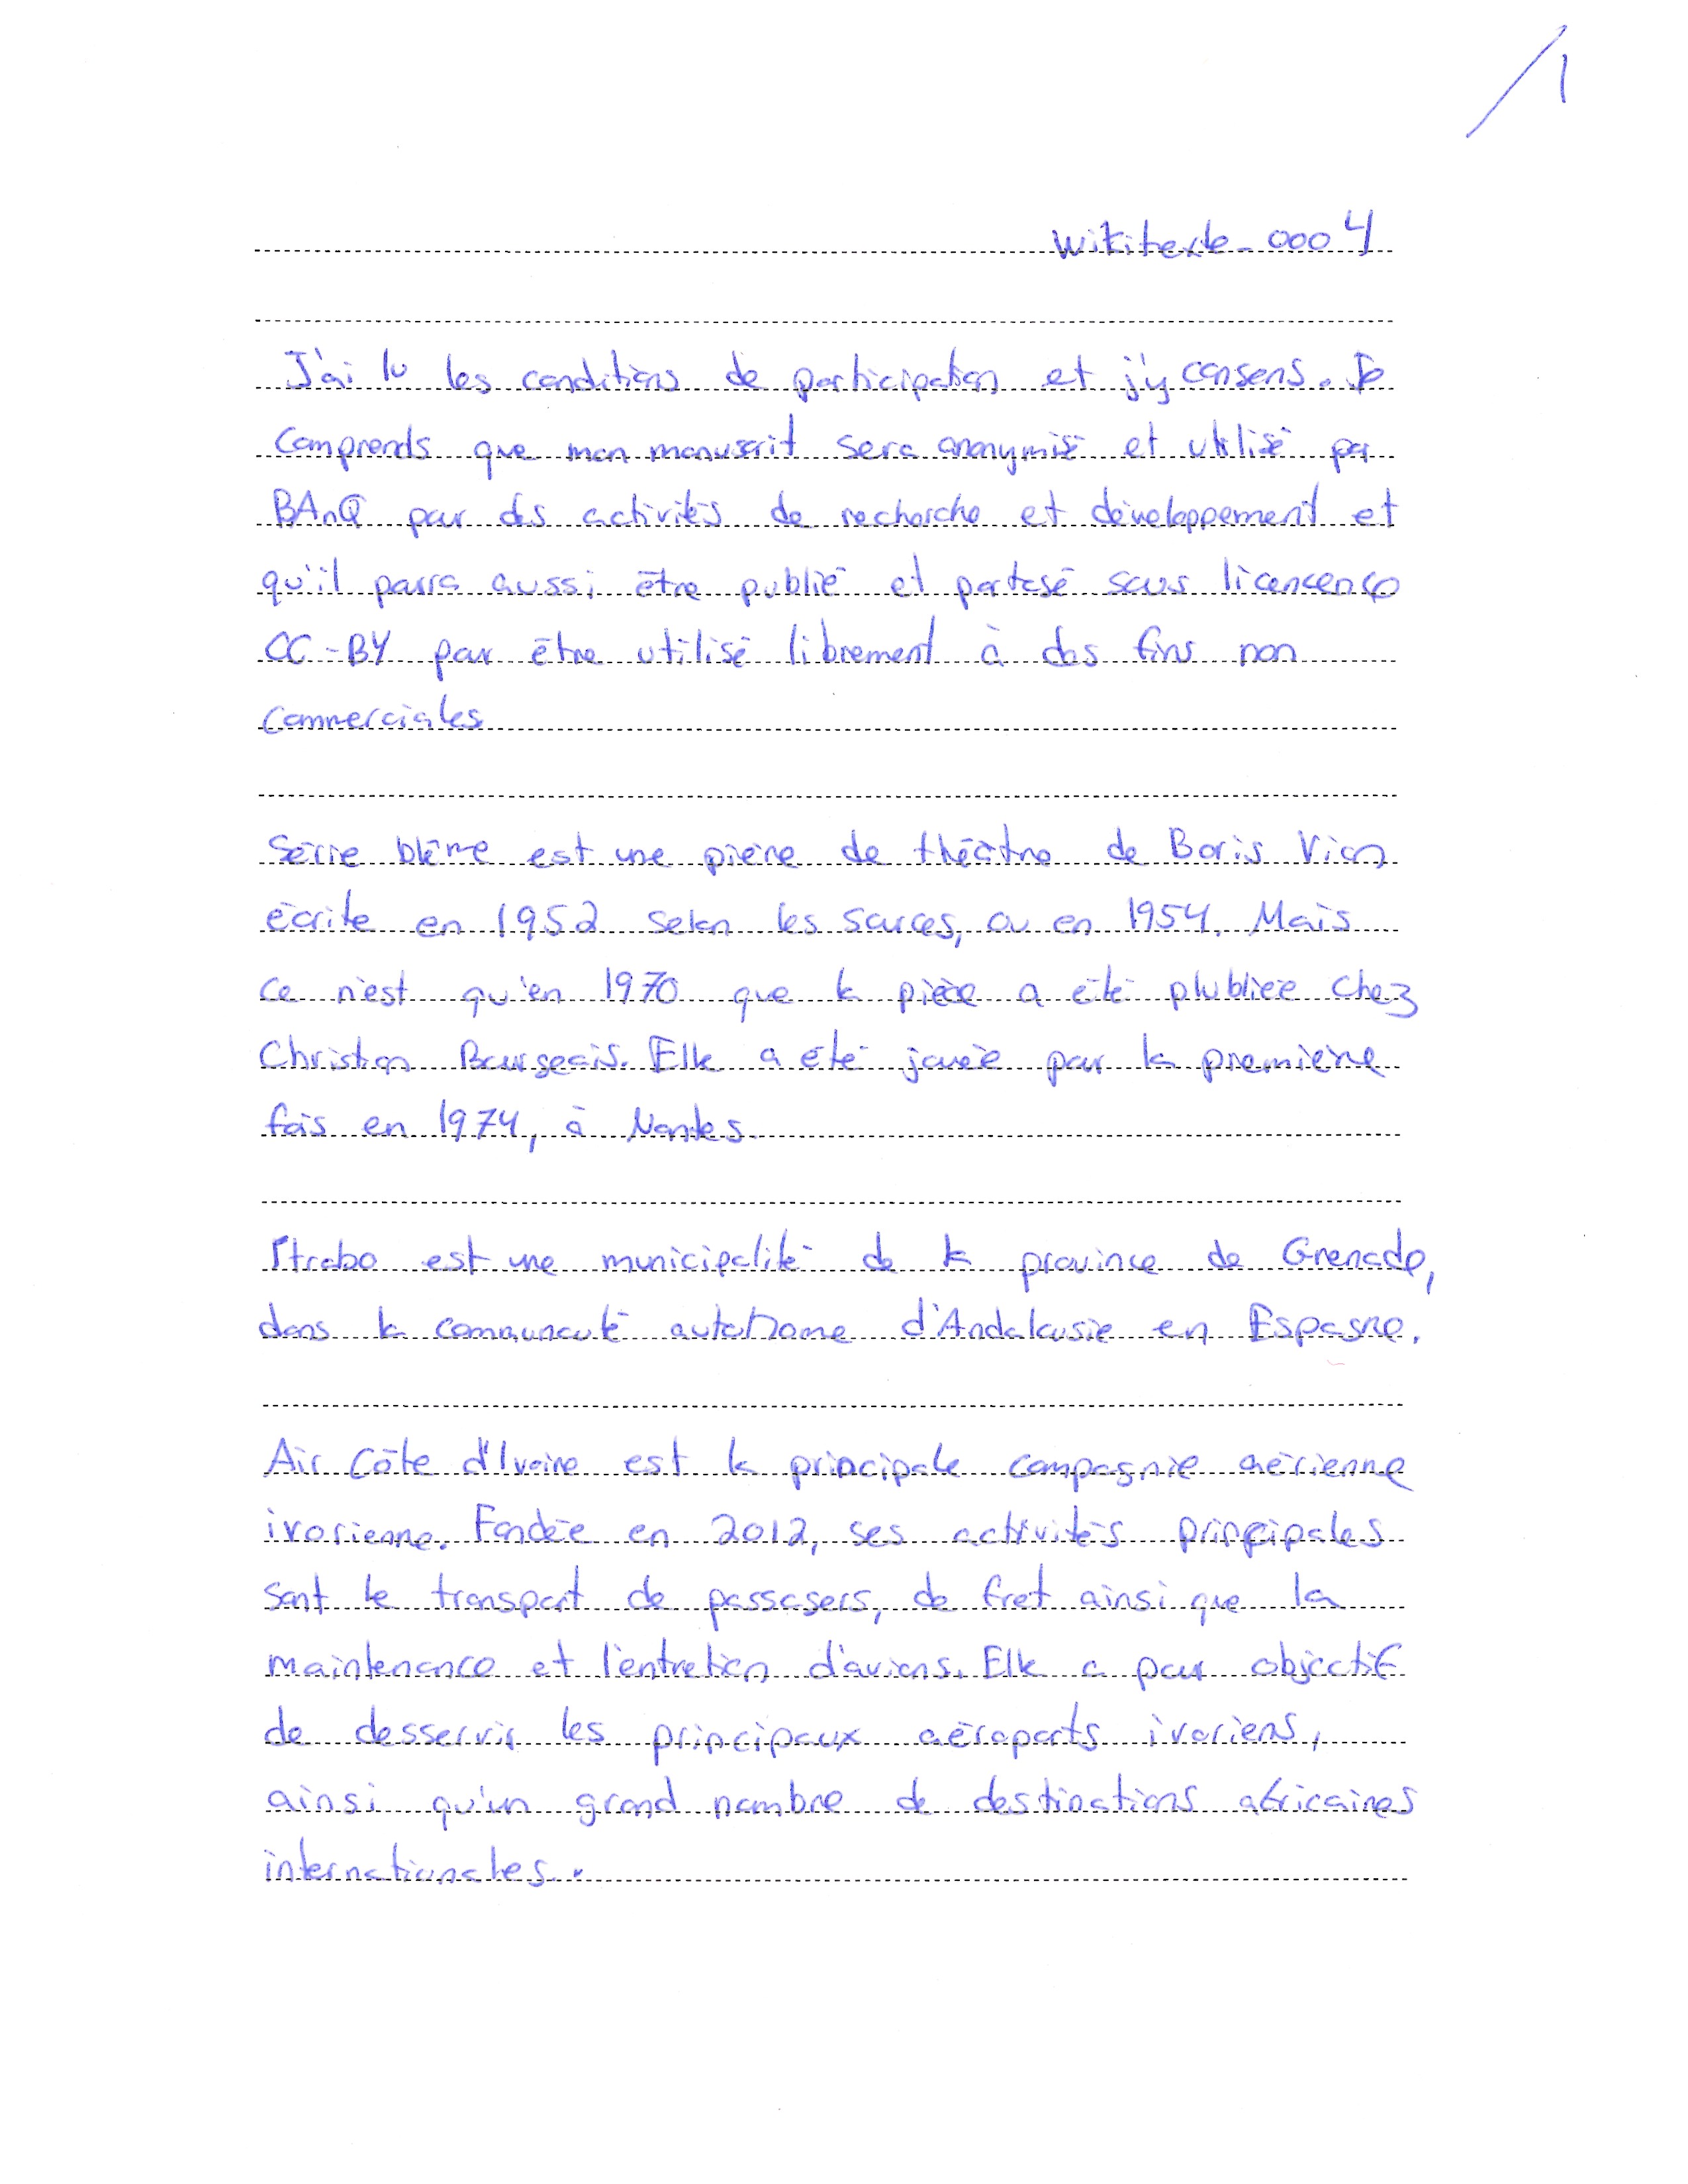 /1
Wikitexte-0004
J'ai lu les conditions de participation et j'y consens. Je
comprends que mon manuscrit sera anonymisé et utilisé par
BAnQ pour des activités de recherche et développement et
qu'il pourra aussi être publié et partagé sous licencence
CC-BY pour être utilisé librement à des fins non
commerciales
Série blême est une pière de théâtre de Boris Vian
écrite en 1952 selon les sources, ou en 1954. Mais
ce n'est qu'en 1970 que la pièce a été plubliée chez
Christian Bourgeois. Elle a été jouée pour la première
fois en 1974, à Nantes.
Itrabo est une municipalité de la province de Grenade,
dans la communauté autonome d'Andalousie en Espagne.
Air Côte d'Ivoire est la principale compagnie aérienne
ivorienne. Fondée en 2012, ses activités principales
sont le transport de passagers, de fret ainsi que la
maintenance et l'entretien d'avions. Elle a pour objectif
de desservir les principaux aéroports ivoriens,
ainsi qu'un grand nombre de destinations africaines
internationales.